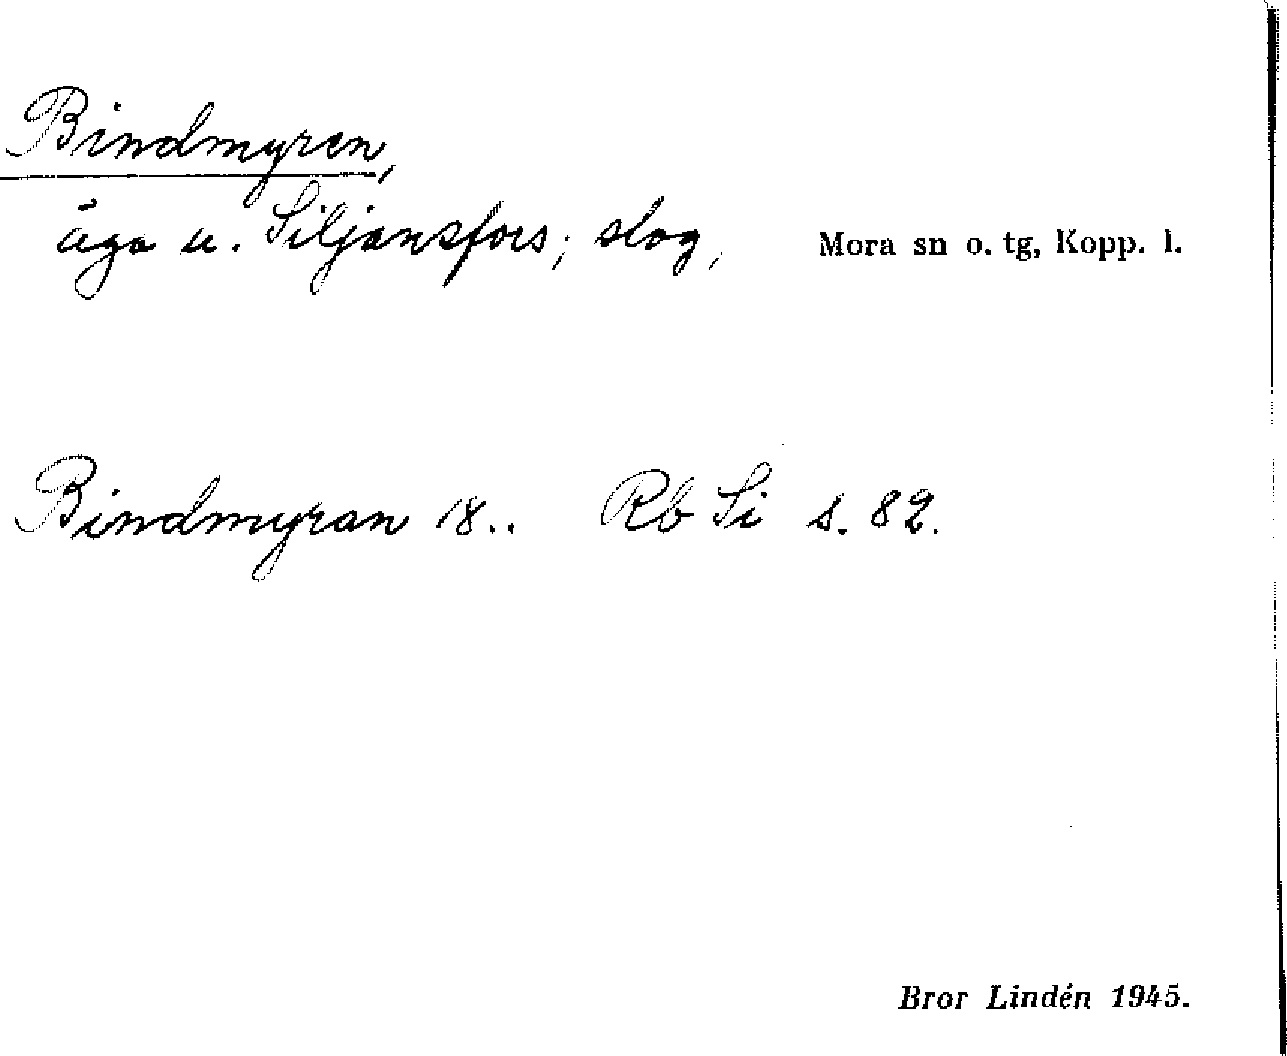 Bindmyren,
äga u. Siljansfors; slog, Mora sn o. tg, Kopp. l.
Bindmyran 18.. Rb Si s. 82.
Bror Lindén 1945.